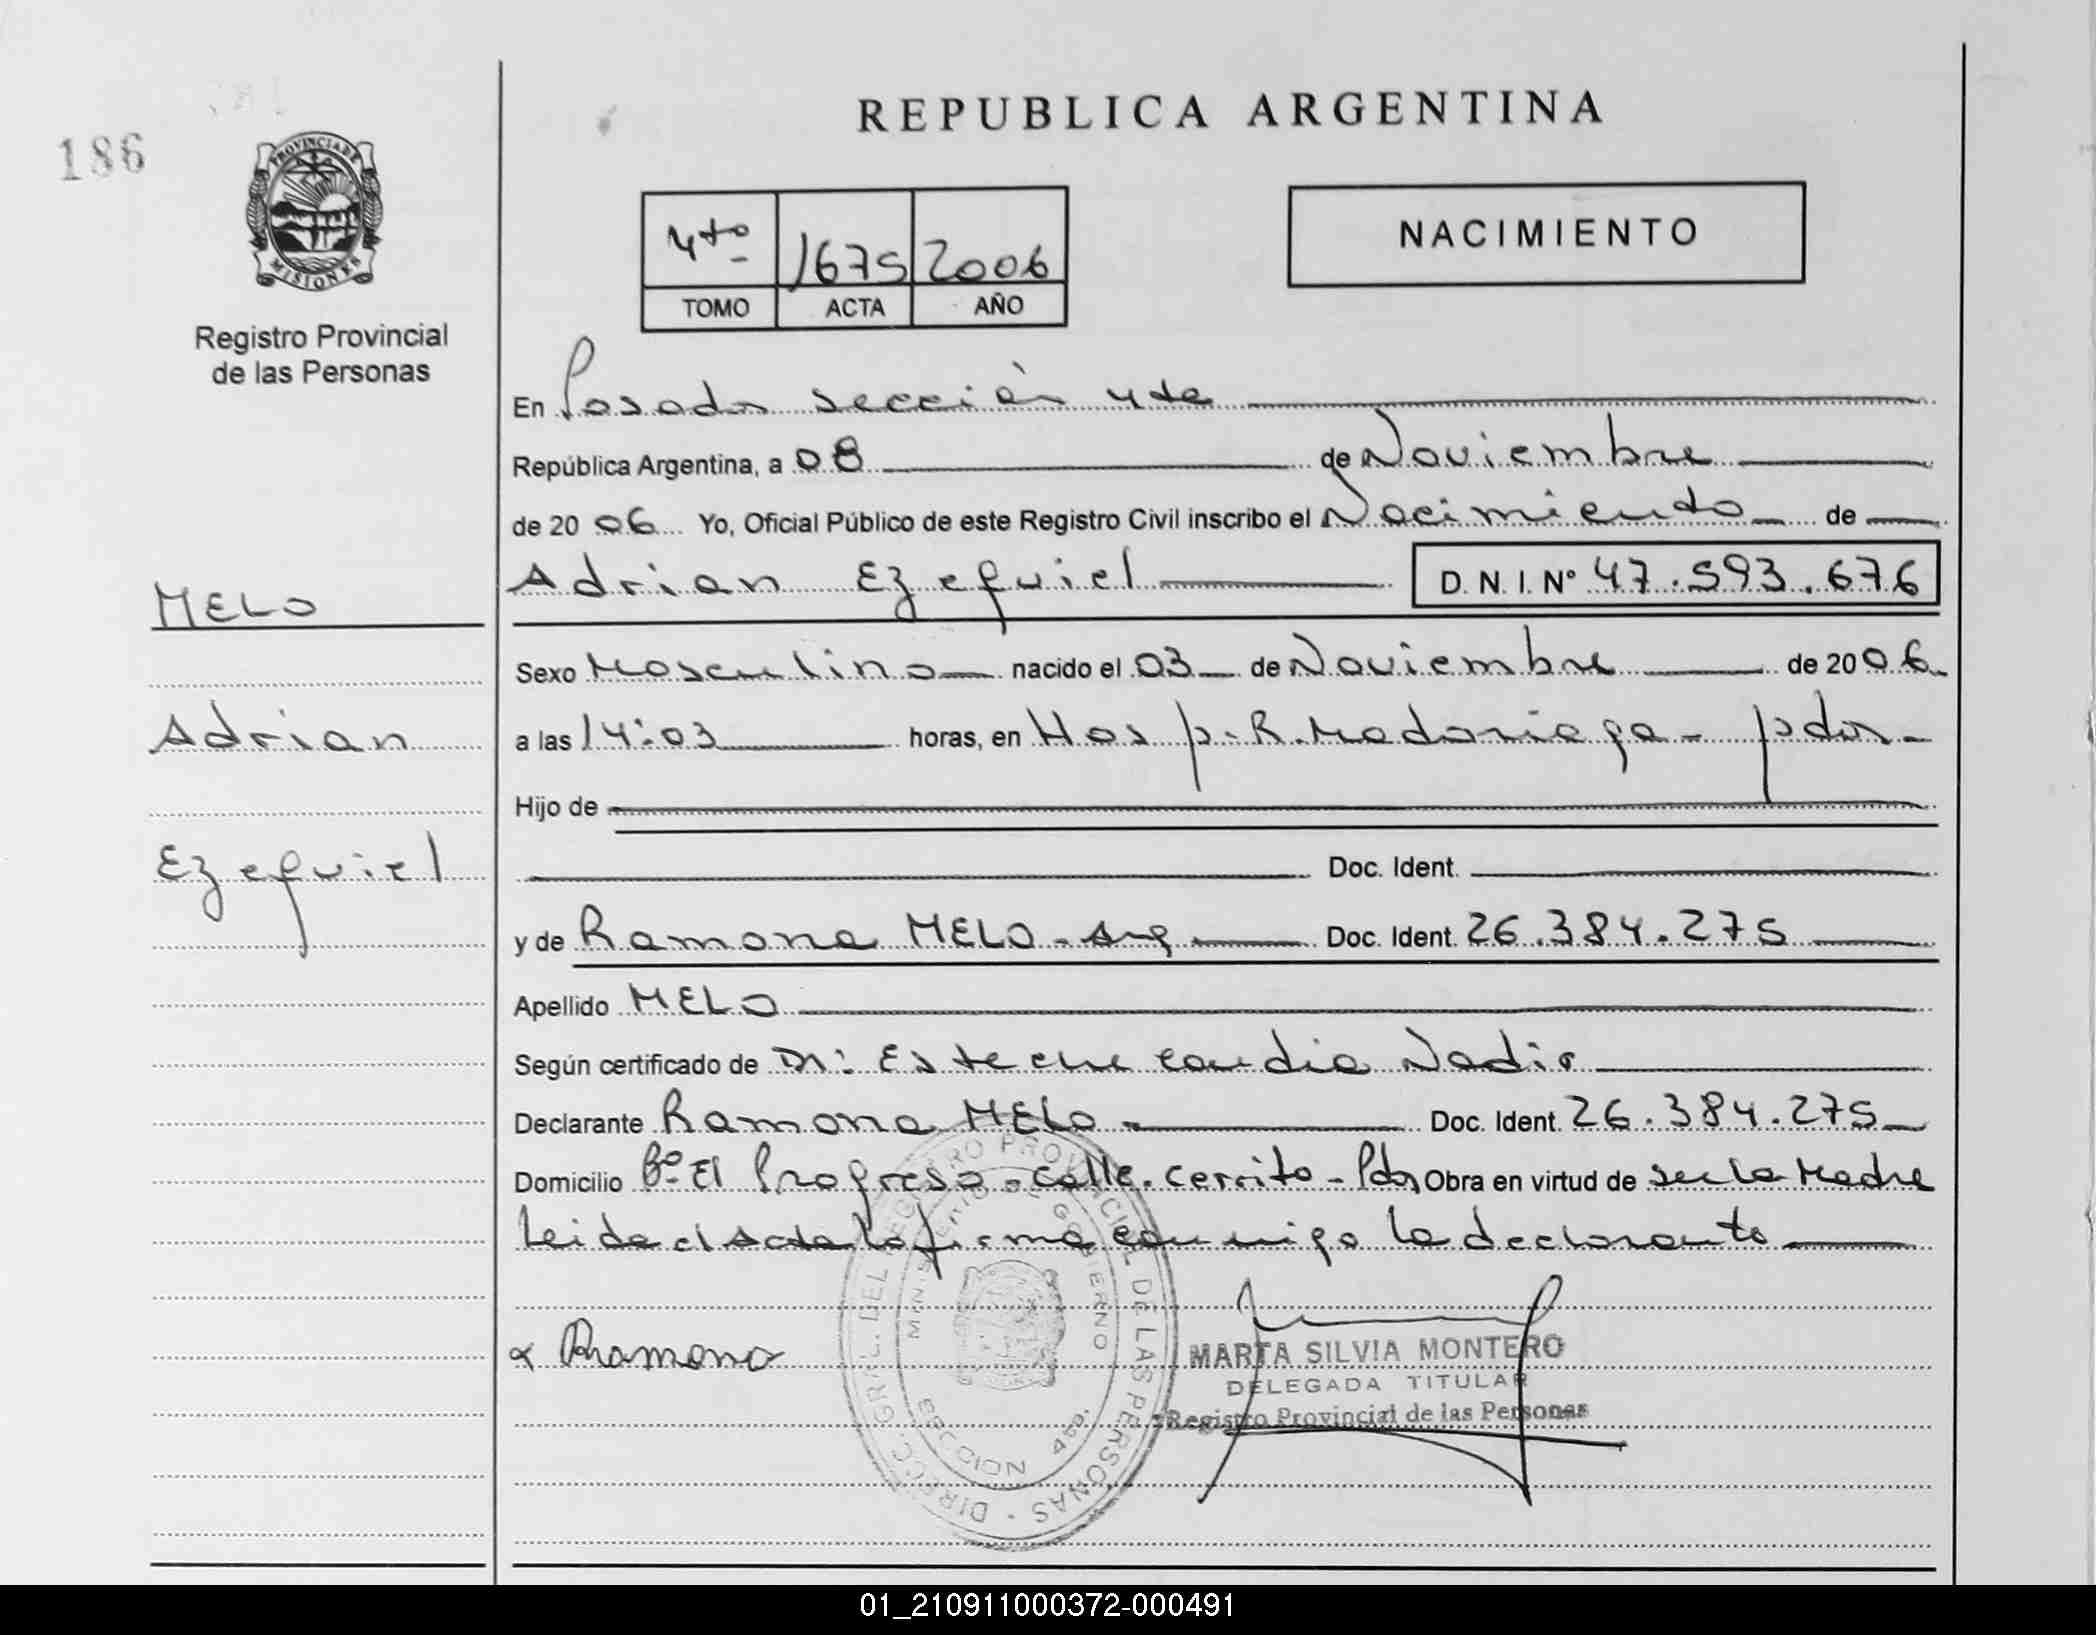 REPUBLICA ARGENTINA
186
PROVINCIA DE
MISIONES
Registro Provincial
de las Personas
NACIMIENTO
4to 1675 2006
TOMO ACTA AÑO
En Posadas sección 4ta
República Argentina, a 08 de Noviembre
de 2006 Yo, Oficial Público de este Registro Civil inscribo el Nacimiento de
Adrian Ezequiel D. N. I. Nº 47.593.676
MELO
Adrian
Ezequiel
Sexo Masculino nacido el 03 de Noviembre de 2006
a las 14:03 horas, en Hosp. R. Madariaga - pdas -
Hijo de
Doc. Ident.
y de Ramona MELO - Arg Doc. Ident. 26.384.275
Apellido MELO
Según certificado de Dr: Esteche Nadia
Declarante Ramona MELO - Doc. Ident. 26.384.275
Domicilio Bº El Progreso - calle cerrito - Pdas Obra en virtud de ser la Madre
Leida el Acta la firma conmigo la declarante
Ramona
DIRECC. GRAL. DEL REGISTRO PROVINCIAL DE LAS PERSONAS
MINISTERIO DE GOBIERNO
MARTA SILVIA MONTERO
DELEGADA TITULAR
Registro Provincial de las Personas
01_210911000372-000491